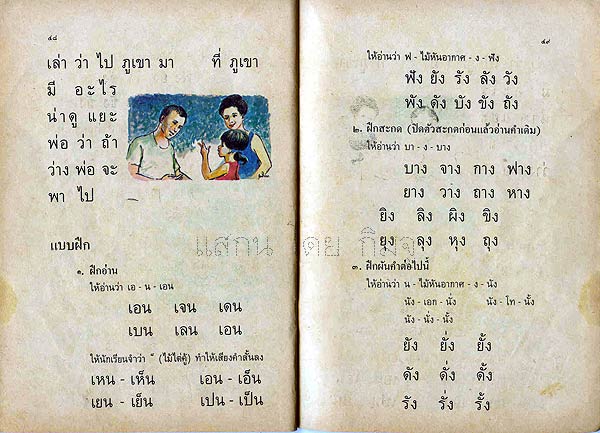 ๔๘
เล่า ว่า ไป ภูเขา มา ที่ ภูเขา
มี อะไร
น่าดู แยะ
พ่อ ว่า ถ้า
ว่าง พ่อ จะ
พา ไป
แบบฝึก
๑. ฝึกอ่าน
ให้อ่านว่า เอ - น - เอน
เอน เจน เดน
เบน เลน เอน
ให้นักเรียนจำว่า ็ (ไม้ไต่คู้) ทำให้เสียงคำสั้นลง
เหน - เห็น เอน - เอ็น
เยน - เย็น เปน - เป็น
๔๙
ให้อ่านว่า ฟ - ไม้หันอากาศ - ง - ฟัง
ฟัง ยัง รัง ลัง วัง
พัง ดัง บัง ขัง ถัง
๒. ฝึกสะกด (ปิดตัวสะกดก่อนแล้วอ่านคำเดิม)
ให้อ่านว่า บา - ง - บาง
บาง จาง กาง ฟาง
ยาง วาง ถาง หาง
ยิง ลิง ผิง ขิง
ยุง ลุง หุง ถุง
๓. ฝึกผันคำต่อไปนี้
ให้อ่านว่า น - ไม้หันอากาศ - ง - นัง
นัง - เอก - นั่ง นัง - โท - นั้ง
นัง - นั่ง - นั้ง
ยัง ยั่ง ยั้ง
ดัง ดั่ง ดั้ง
รัง รั่ง รั้ง
แสกน โดย กิมจ